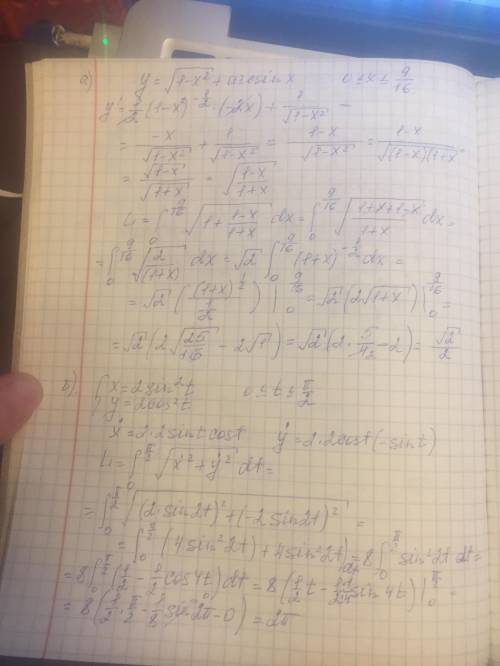 а) y = √(1-x²) + arcsin x    0 ≤ x ≤ 9/16
y' = 1/2 (1-x²)^(-1/2) · (-2x) + 1/√(1-x²) =
= -x/√(1-x²) + 1/√(1-x²) = (1-x)/√(1-x²) = (1-x)/√((1-x)(1+x)
= √(1-x)/√(1+x) = √((1-x)/(1+x))
L = ∫₀^(9/16) √(1 + (1-x)/(1+x)) dx = ∫₀^(9/16) √((1+x+1-x)/(1+x)) dx =
= ∫₀^(9/16) √(2/(1+x)) dx = √2 ∫₀^(9/16) (1+x)^(-1/2) dx =
= √2 ((1+x)^(1/2) / (1/2)) |₀^(9/16) = √2 (2√(1+x)) |₀^(9/16) =
= √2 (2√(25/16) - 2√1) = √2 (2 · 5/4 - 2) = √2/2
б) { x = 2sin²t    0 ≤ t ≤ π/2
y = 2cos²t
x' = 2·2sint cost    y' = 2·2cost(-sint)
L = ∫₀^(π/2) √(x'² + y'²) dt =
= ∫₀^(π/2) √((2·sin2t)² + (-2sin2t)²) =
= ∫₀^(π/2) (4sin²2t) + 4sin²2t) dt = 8 ∫₀^(π/2) sin²2t dt =
= 8 ∫₀^(π/2) (1/2 - 1/2 cos4t) dt = 8 (1/2 t - 1/2 · 1/4 sin 4t) |₀^(π/2) =
= 8 (1/2 · π/2 - 1/8 sin 2π - 0) = 2π